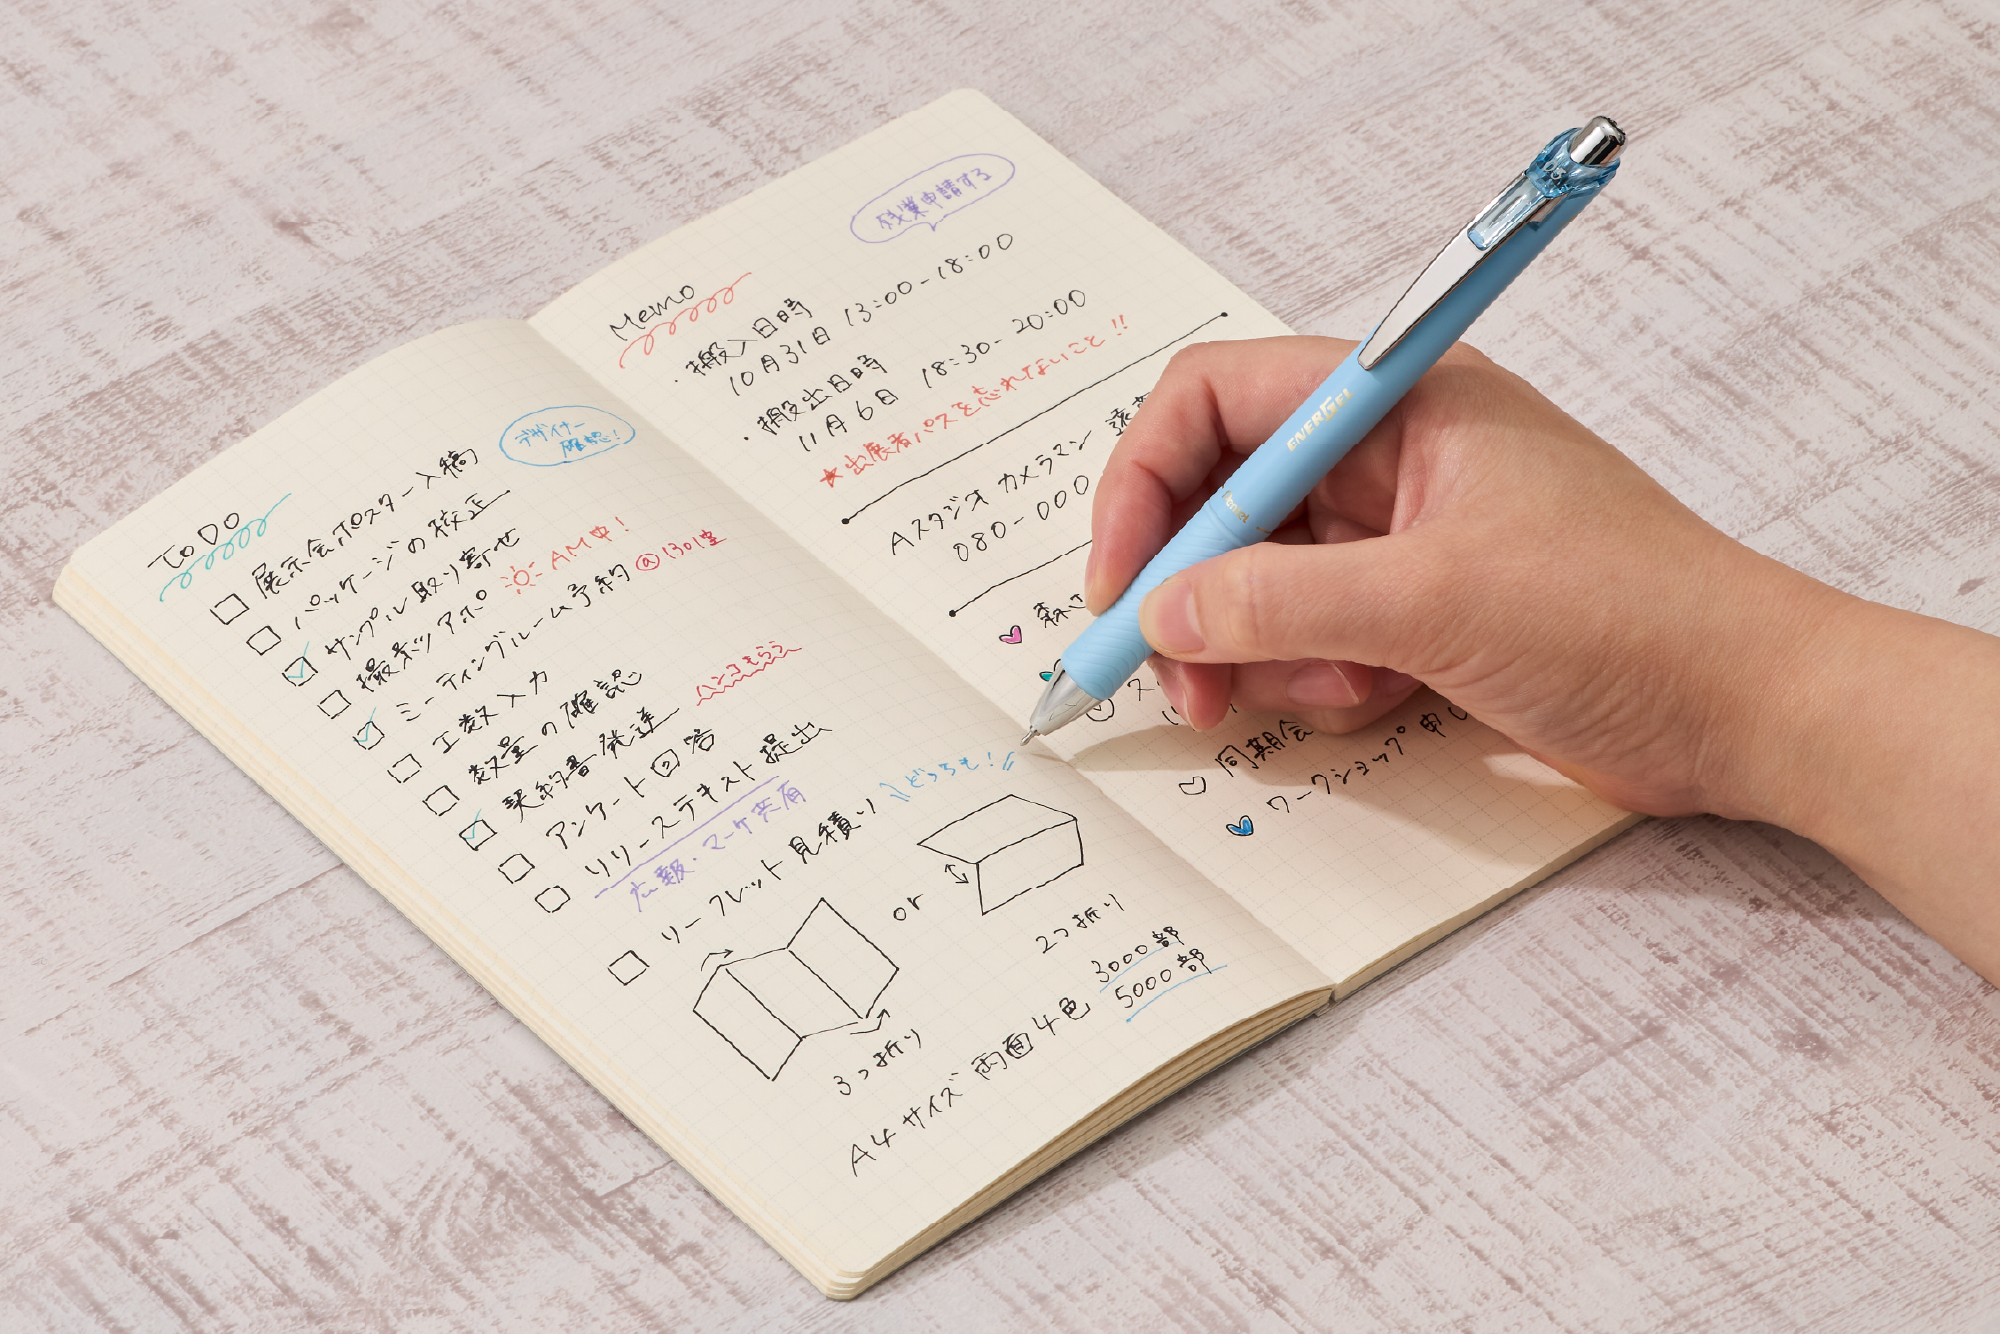 ToDo
デザイナー
確認!
展示会ポスター入稿
パッケージの校正
サンプル取り寄せ
撮影アポ AM中!
ミーティングルーム予約 @1301室
工数入力
数量の確認
契約書発送 ハンコもらう
アンケート回答
リリーステキスト提出
広報・マーケ共有
リーフレット見積り どっちも!
or
3つ折り
2つ折り
A4サイズ 両面4色 3000部
5000部
Memo
残業申請する
・搬入日時
10月31日 13:00-18:00
・搬出日時
11月6日 18:30-20:00
★出展者パスを忘れないこと!!
Aスタジオ カメラマン
080-000
森
ス
同期会
ワークショップ 申し
ENERGEL
Pentel